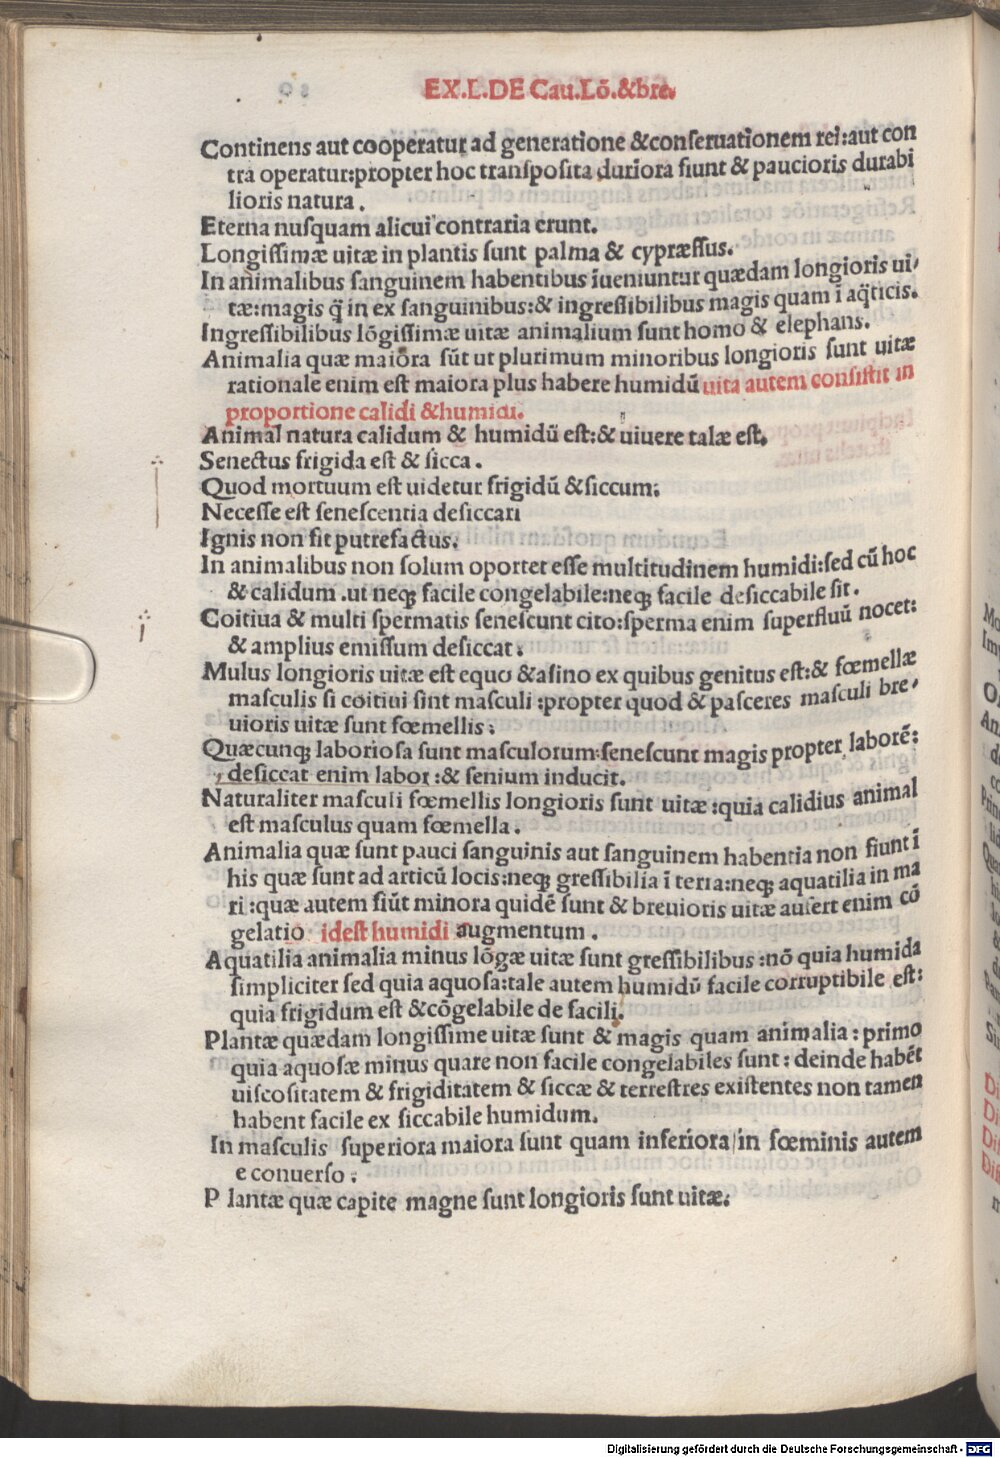 EX.L.DE Cau.Lõ.&bre.
Continens aut cooperatur ad generatione &conſeruationem rei:aut con
tra operatur:propter hoc tranſpoſita duriora fiunt & paucioris durabi
lioris natura.
Eterna nuſquam alicui contraria erunt.
Longiſſimæ uitæ in plantis ſunt palma & cypræſſus.
In animalibus ſanguinem habentibus ĩueniuntur quædam longioris ui/
tæ:magis q̃ in ex ſanguinibus:& ingreſſibilibus magis quam ĩ aq̃ticis.
Ingreſſibilibus lõgiſſimæ uitæ animalium ſunt homo & elephans.
Animalia quæ maiora ſũt ut plurimum minoribus longioris ſunt uitæ
rationale enim eſt maiora plus habere humidũ uita autem conſiſtit in
proportione calidi &humidi.
Animal natura calidum & humidũ eſt:& uiuere talæ eſt.
Senectus frigida eſt & ſicca.
Quod mortuum eſt uidetur frigidũ &ſiccum:
Neceſſe eſt ſeneſcentia deſiccari
Ignis non fit putrefactus.
In animalibus non ſolum oportet eſſe multitudinem humidi:ſed cũ hoc
& calidum .ut neqȝ facile congelabile:neqȝ facile deſiccabile ſit.
Coitiua & multi ſpermatis ſeneſcunt cito:ſperma enim ſuperfluũ nocet:
& amplius emiſſum deſiccat:
Mulus longioris uitæ eſt equo &aſino ex quibus genitus eſt:& fœmellæ
maſculis ſi coitiui ſint maſculi :propter quod & paſceres maſculi bre/
uioris uitæ ſunt fœmellis:
Quæcunqȝ laborioſa ſunt maſculorum:ſeneſcunt magis propter laborẽ:
deſiccat enim labor:& ſenium inducit.
Naturaliter maſculi fœmellis longioris ſunt uitæ:quia calidius animal
eſt maſculus quam fœmella.
Animalia quæ ſunt pauci ſanguinis aut ſanguinem habentia non fiunt ĩ
his quæ ſunt ad articũ locis:neqȝ greſſibilia ĩ terra:neqȝ aquatilia in ma
ri:quæ autem fiũt minora quidẽ ſunt & breuioris uitæ aufert enim cõ
gelatio ideſt humidi augmentum.
Aquatilia animalia minus lõgæ uitæ ſunt greſſibilibus:nõ quia humida
ſimpliciter ſed quia aquoſa:tale autem humidũ facile corruptibile eſt:
quia frigidum eſt &cõgelabile de facili.
Plantæ quædam longiſſime uitæ ſunt & magis quam animalia:primo
quia aquoſæ minus quare non facile congelabiles ſunt:deinde habẽt
uiſcoſitatem & frigiditatem & ſiccæ & terreſtres exiſtentes non tamen
habent facile ex ſiccabile humidum.
In maſculis ſuperiora maiora ſunt quam inferiora/in fœminis autem
e conuerſo:
P lantæ quæ capite magne ſunt longioris ſunt uitæ.
Digitalisierung gefördert durch die Deutsche Forschungsgemeinschaft - DFG